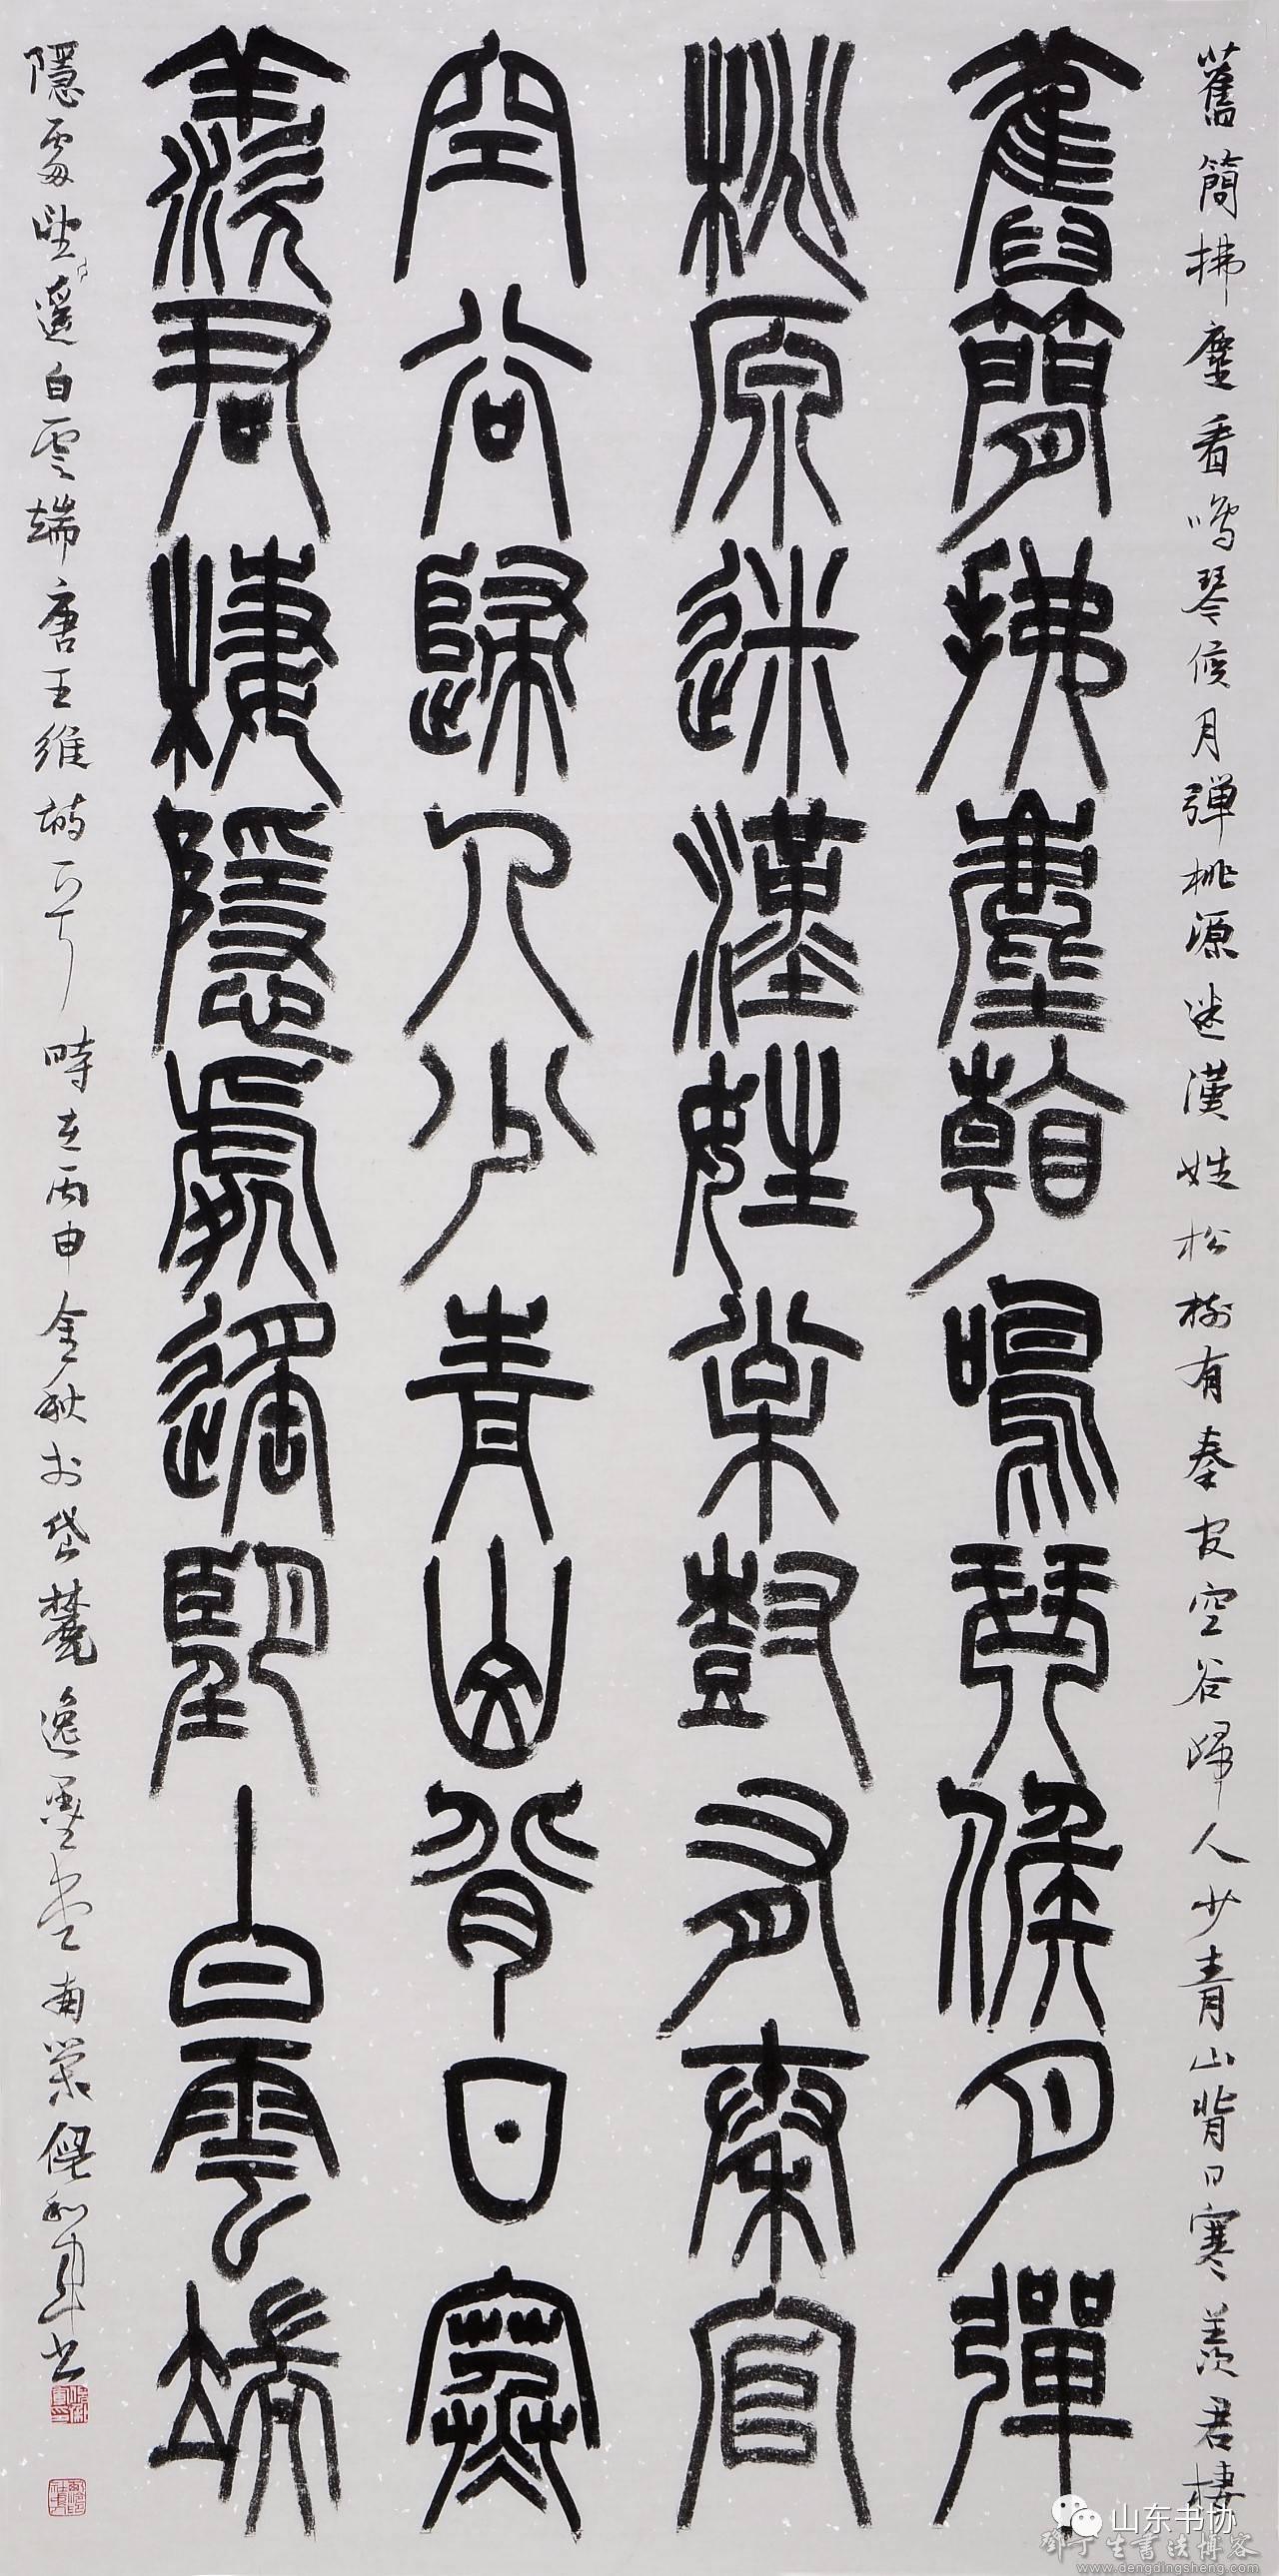 舊簡拂塵看鳴琴候月弹桃源迷漢姓松樹有秦官空谷歸人少青山背日寒羨君棲
舊簡拂塵看鳴琴候月彈
桃原迷漢姓松樹有秦官
空谷歸人少青山背日寒
羨君棲隱處遥望白雲端
隱處望遥白雲端唐王維詩 時在丙申金秋於岱麓逸墨堂南 倪和軍书
山东书协
鄧丁生書法博客
www.dengdingsheng.com